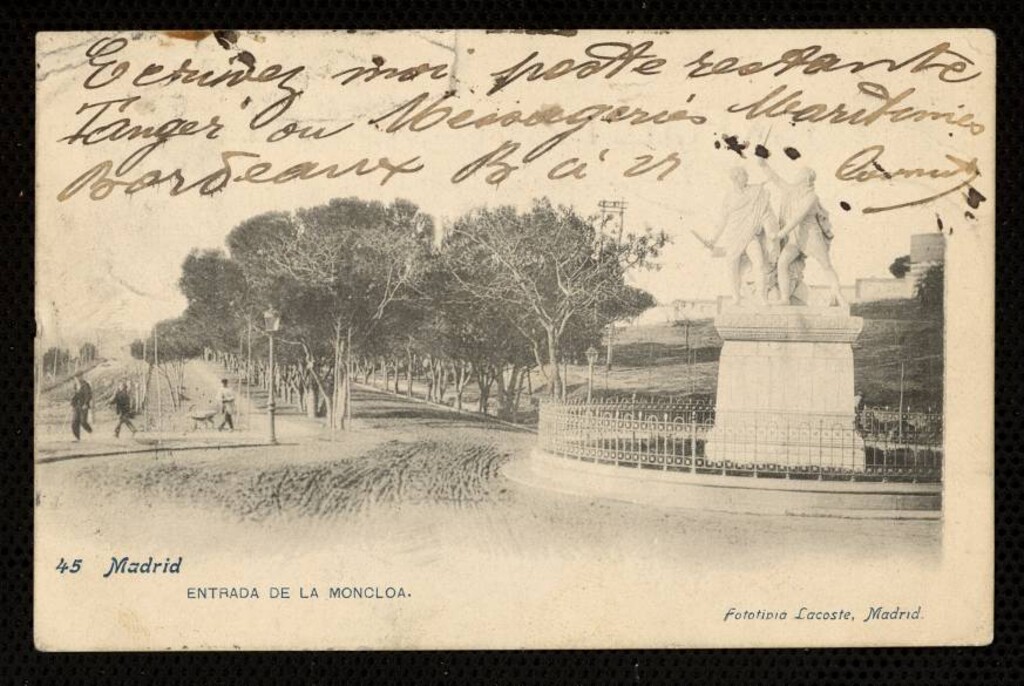 Ecrivez moi poste restante
Tanger ou Messageries Maritimes
Bordeaux B a
45 Madrid
ENTRADA DE LA MONCLOA.
Fototipia Lacoste, Madrid.